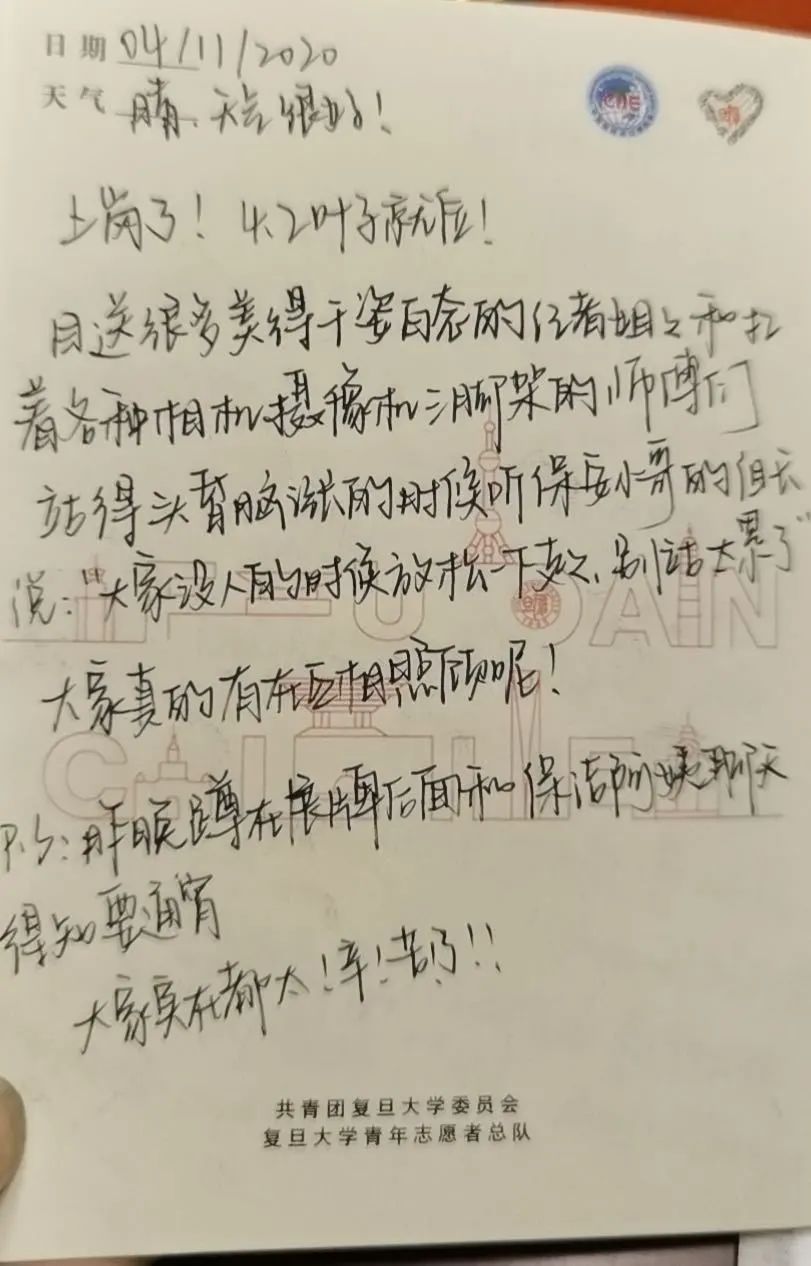 日期 04/11/2020
天气 晴、天气很好!
上岗了! 4.2叶子就位!
目送很多美得千姿百态的记者姐々和扛
着各种相机摄像机三脚架的师傅们
站得头昏脑涨的时候听保安小哥的组长
说:"大家没人的时候放松一下
别站太累了"
大家真的有在互相照顾呢!
P.S:昨晚蹲在展牌后面和保洁阿姨聊天
得知要通宵
大家实在都太!辛!苦!了!!
共青团复旦大学委员会
复旦大学青年志愿者总队